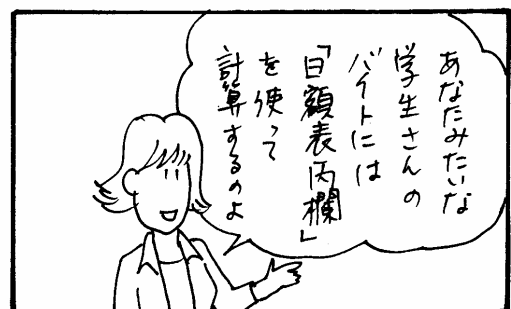 あなたみたいな
学生さんの
バイトには
「日額表丙欄」
を使って
計算するのよ